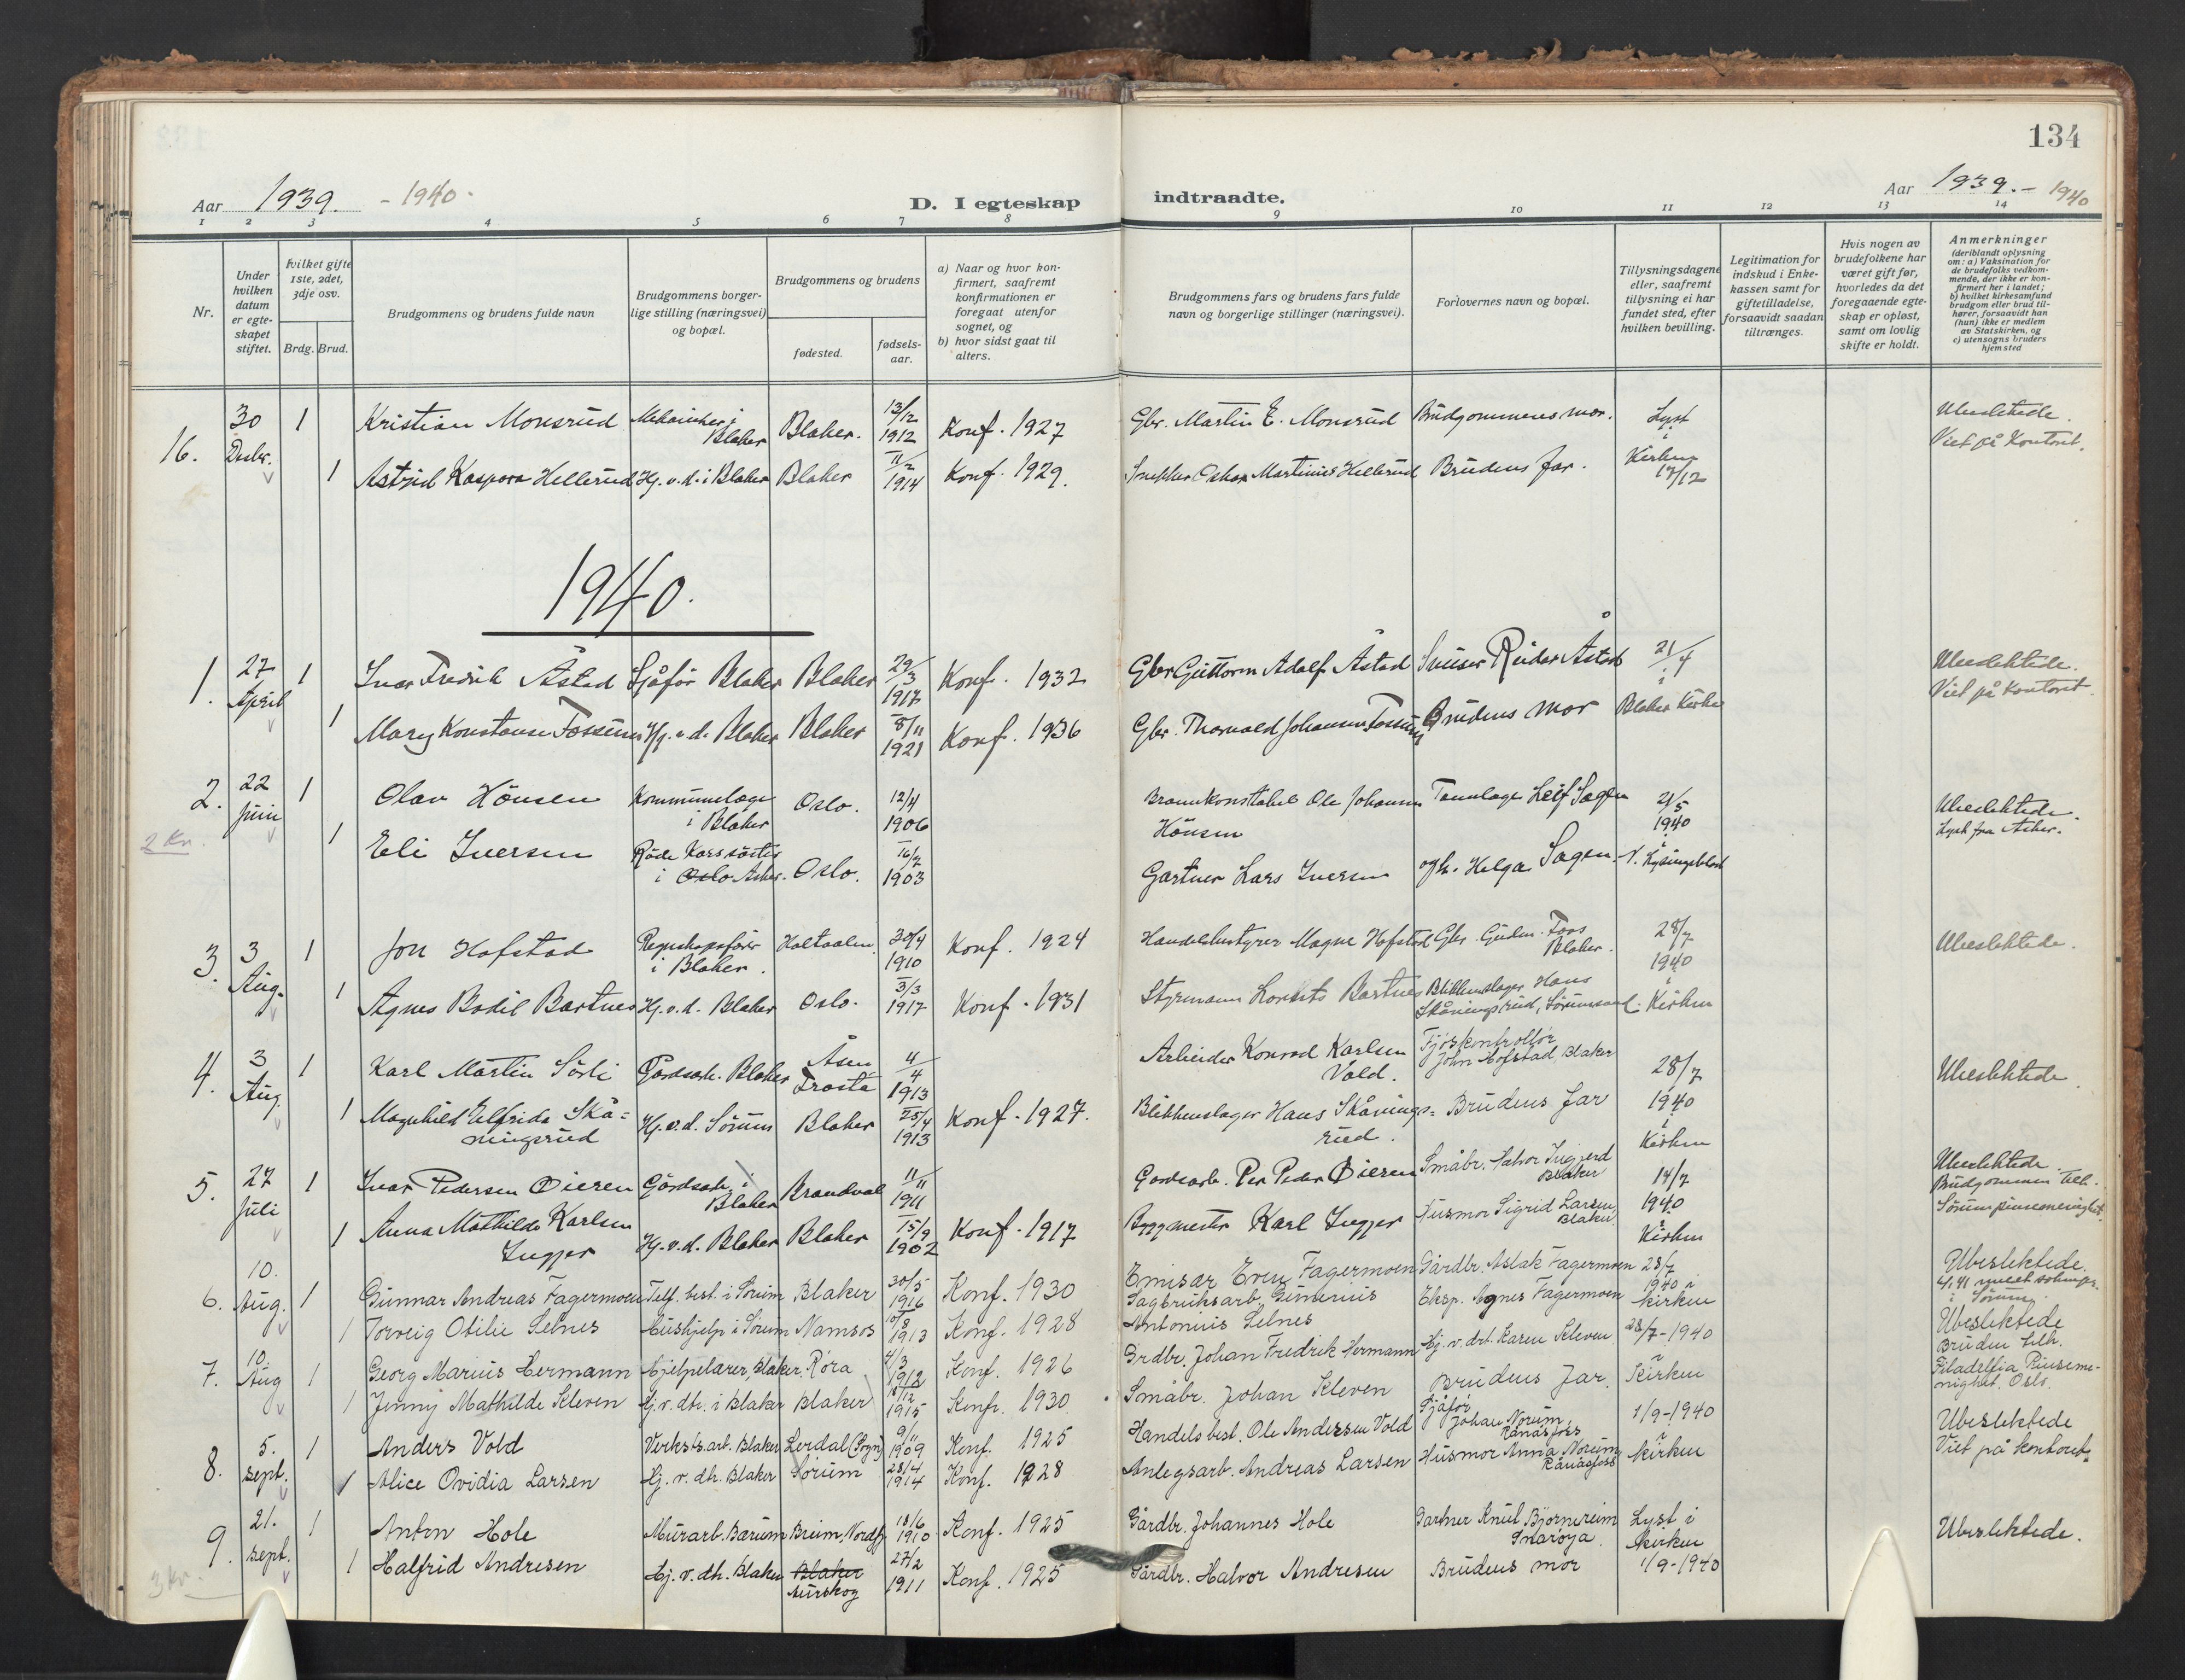 134
Aar 1939. - 1940.
D. I egteskap indtraadte.
Aar 1939. - 1940
1 2 3 4 5 6 7 8 9 10 11 12 13 14
Nr.
Under hvilken datum er egteskapet stiftet.
Hvilket gifte 1ste, 2det, 3dje osv.
Brdg. Brud.
Brudgommens og brudens fulde navn
Brudgommens borgerlige stilling (næringsvei) og bopæl.
Brudgommens og brudens
fødested.
fødselsaar.
a) Naar og hvor konfirmert, saafremt konfirmationen er foregaat utenfor sognet, og
b) hvor sidst gaat til alters.
Brudgommens fars og brudens fars fulde navn og borgerlige stillinger (næringsvei).
Forlovernes navn og bopæl.
Tillysningsdagene eller, saafremt tillysning ei har fundet sted, efter hvilken bevilling.
Legitimation for indskud i Enkekassen samt for giftetilladelse, forsaavidt saadan tiltrænges.
Hvis nogen av brudefolkene har været gift før, hvorledes da det foregaaende egteskap er opløst, samt om lovlig skifte er holdt.
Anmerkninger (deriblandt oplysning om: a) Vaksination for de brudefolks vedkommende, der ikke er konfirmert her i landet; b) hvilket kirkesamfund brudgom eller brud tilhører, forsaavidt han (hun) ikke er medlem av Statskirken, og c) utensogns bruders hjemsted
16. 30 Desbr. 1 Kristian Monsrud Mekaniker i Blaker Blaker. 13/12 1912 Konf. 1927 Gbr. Martin E. Monsrud Brudgommenes mor. Lyst i Kirken 17/12 Ubeslektede. Viet på Kontoret.
1 Astrid Kaspara Hellerud Hj. v. d. i Blaker Blaker 11/2 1914 Konf. 1929. Snekker Oskar Martinius Hellerud Brudens far.
1940.
1. 27 April 1 Ivar Fredrik Åstad Sjåfør Blaker Blaker 29/3 1917 Konf. 1932 Gbr Guttorm Adolf Åstad Reidar Åstad 21/4 i Blaker Kirke Ubeslektede. Viet på Kontoret.
1 Mary Konstanse Fossum Hj. v. d. Blaker Blaker 8/11 1921 Konf. 1936 Gbr. Thorvald Johansen Fossum Brudens mor
2. 22 Juni 1 Olav Hönsen Kommunelæge i Blaker Oslo. 12/4 1906 Brannkonstabel Ole Johannes Hönsen Tannlæge Leif Sagen 21/5 1940 i N. Lysingsblad Ubeslektede. Lyst fra Asker.
2 Kr.
1 Eli Iversen Røde Korssøster i Oslo Asker. Oslo. 16/7 1903 Gartner Lars Iversen og fr. Helga Sagen
3. 3 Aug. 1 Jon Hofstad Regnskapsfører i Blaker. Haltdalen 30/4 1910 Konf. 1924 Handelsbestyrer Magne Hofstad Gbr. Gudm. Foss Blaker. 28/7 1940 i Kirken Ubeslektede.
1 Agnes Bodil Bartnes Hj. v. d. Blaker Oslo. 3/3 1917 Konf. 1931 Styrmann Bartnes Blikkenslager Hans Skåningsrud, Sørumsand
4. 3 Aug. 1 Karl Martin Sörli Gårdsarb. Blaker Åsen Frosta 4/4 1913 Arbeider Konrad Karlsen Vold. Fjøskontrollør John Hofstad Blaker 28/7 1940 i Kirken Ubeslektede.
1 Magnhild Elfrida Skåningsrud Hj. v. d. Sörum Blaker 25/4 1913 Konf. 1927. Blikkenslager Hans Skåningsrud. Brudens far
5. 27 Juli 1 Ivar Pedersen Øieren Gårdsarb. i Blaker Brandval 11/11 1911 Gårdsarb. Per Peder Øieren Småbr. Halvor Blaker 14/7 1940 i Kirken Ubeslektede. Brudgommen tilh. Sörum pinsemenighet.
1 Anna Mathilde Karlsen Ingjer Hj. v. d. Blaker Blaker 15/9 1902 Konf. 1917 Byggmester Karl Ingjer Husmor Sigrid Larsen, Blaker
6. 10. Aug. 1 Gunnar Andreas Fagermoen Telf. best. i Sørum Blaker 30/5 1916 Konf. 1930 Emisær Even Fagermoen Gårdbr. Aslak Fagermoen 28/7 1940 i kirken Ubeslektede. i Sørum
1 Torveig Otilie Selnes Hushjelp i Sørum Namsos 10/8 1913 Konf. 1928 Sagbruksarb. Antonius Selnes Eksp. Agnes Fagermoen
7. 10. Aug 1 Georg Marius Hermann Hjelpelærer, Blaker. Røra 4/3 1912 Konf. 1926 Grdbr. Johan Fredrik Hermann Hj. v. drt. Karen Kleven 28/7-1940 i Kirken Ubeslektede Bruden tilh. Filadelfia Pinsemenighet, Oslo.
1 Jenny Mathilde Kleven Hj. v. dtr. i Blaker Blaker 18/12 1915 Konfr. 1930 Småbr. Johan Kleven Brudens far.
8. 5. sept. 1 Anders Vold Verksts. arb. Blaker Lerdal (Sogn) 9/11 1909 Konf. 1925 Handelsbest. Ole Andersen Vold Sjåfør Johan Norum, Rånåsfoss 1/9-1940 i kirken Ubeslektede Viet på kontoret
1 Alice Ovidia Larsen Hj. v. dh. Blaker Sørum 28/4 1914 Konf. 1928 Anlegsarb. Andreas Larsen Husmor Anna Norum, Rånåsfoss
9. 21. sept. 1 Anton Hole Murarb. Bærum Breim, Nordfj. 18/6 1910 Konf. 1925 Gårdbr. Johannes Hole Gartner Knut Bjørnereim Snarøya. Lyst i kirken 1/9-1940 Ubeslektede.
3 kr.
1 Halfrid Andresen Hj. v. dh. Blaker Blaker Aurskog 27/2 1911 Konf. 1925 Gårdbr. Halvor Andresen Brudens mor